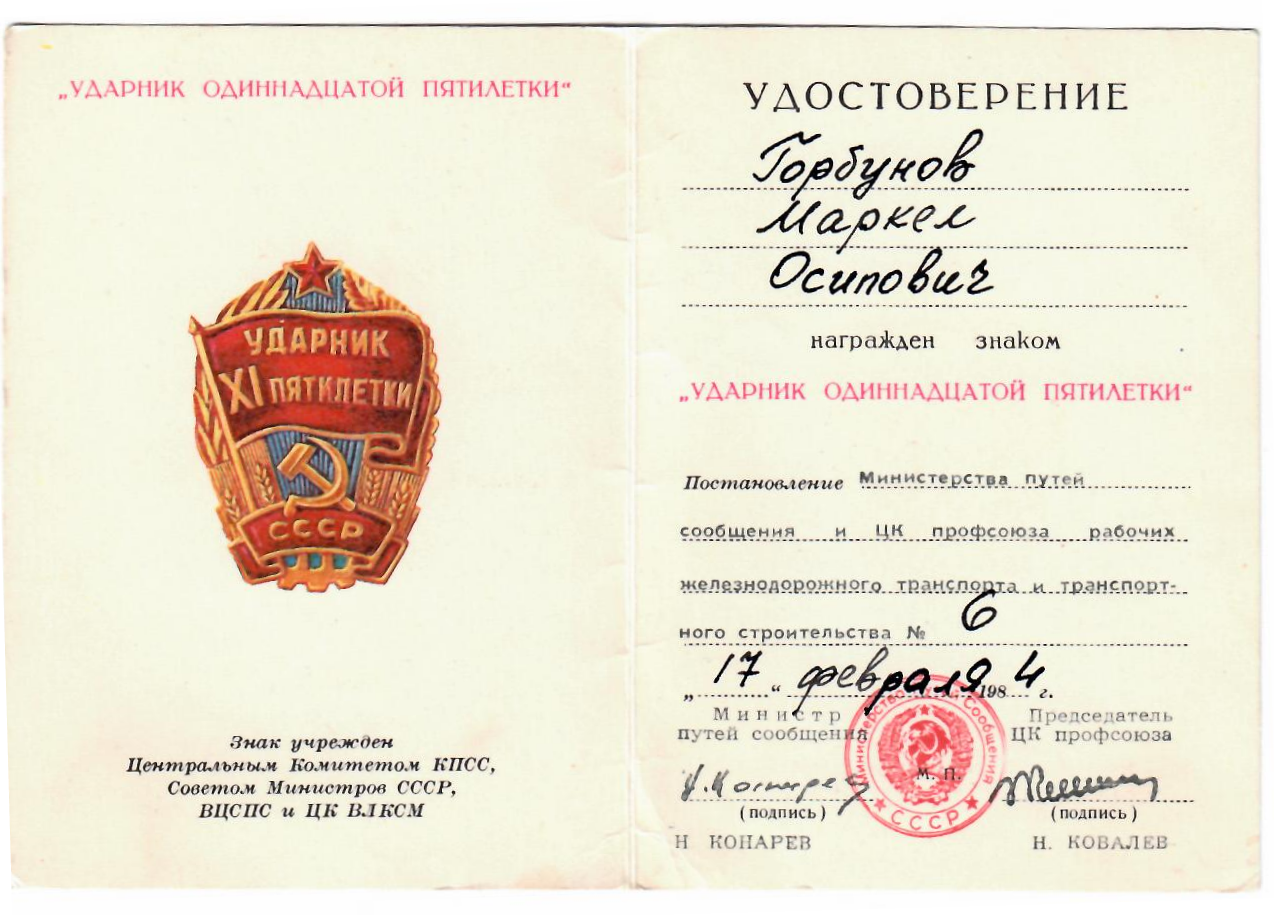 „УДАРНИК ОДИННАДЦАТОЙ ПЯТИЛЕТКИ“
УДАРНИК
XI ПЯТКЛЕТКИ
СССР
Знак учрежден
Центральным Комитетом КПСС,
Советом Министров СССР,
ВЦСПС и ЦК ВЛКСМ
УДОСТОВЕРЕНИЕ
Горбунов
Маркел
Осипович
награжден знаком
„УДАРНИК ОДИННАДЦАТОЙ ПЯТИЛЕТКИ“
Постановление Министерства путей
сообщения и ЦК профсоюза рабочих
железнодорожного транспорта и транспорт-
ного строительства № 6
„ 17 “ февраля 1984 г.
Министр
путей сообщения
Председатель
ЦК профсоюза
Министерство Путей Сообщения
СССР
М. П.
(подпись)
(подпись)
Н КОНАРЕВ
Н. КОВАЛЕВ